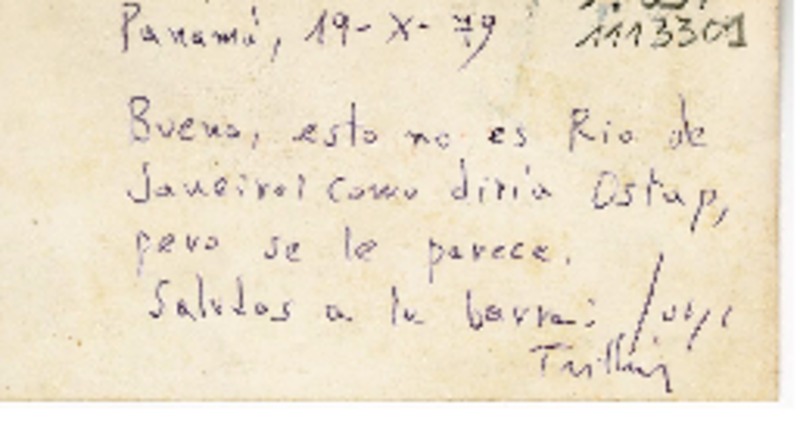 Panamá, 19-X-79
1113301
Bueno, esto no es Rio de
Janeiro, como diría Ostap,
pero se le parece.
Saludos a la barra: